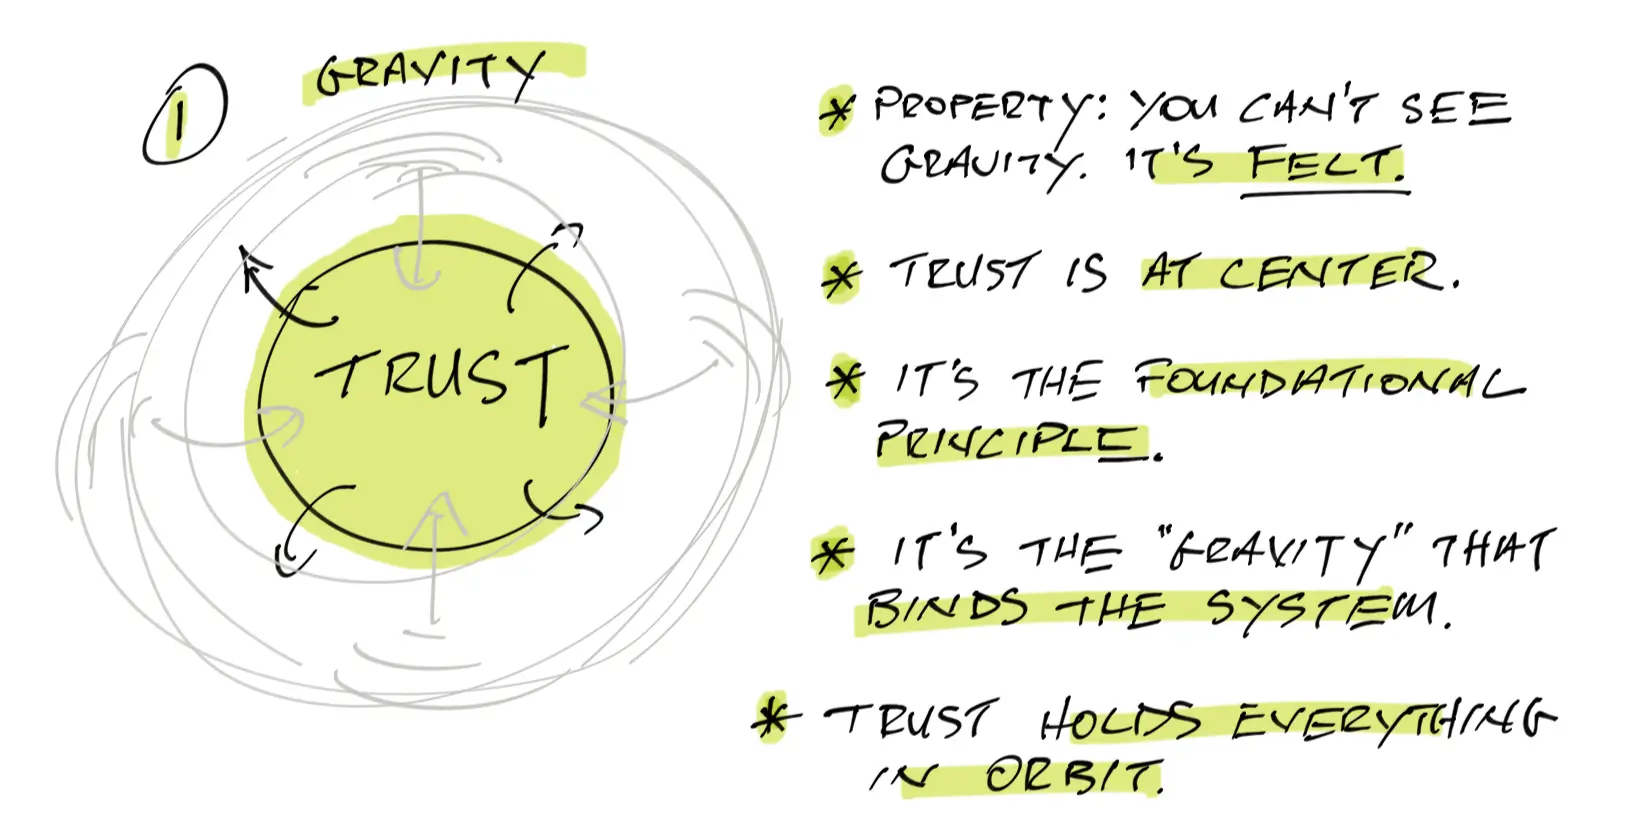 1
GRAVITY
TRUST
* PROPERTY: YOU CAN'T SEE
GRAVITY. IT'S FELT.
* TRUST IS AT CENTER.
* IT'S THE FOUNDATIONAL
PRINCIPLE.
* IT'S THE "GRAVITY" THAT
BINDS THE SYSTEM.
* TRUST HOLDS EVERYTHING
IN ORBIT.